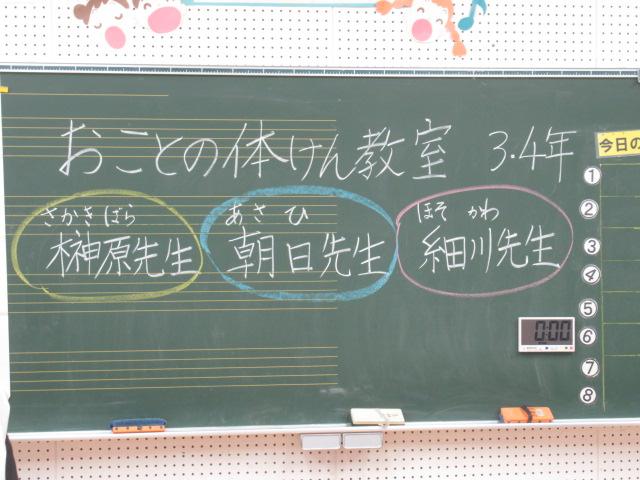 おことの体けん教室 3・4年
今日の
さかきばら あさひ ほそかわ
榊原先生 朝日先生 細川先生
①
②
③
④
⑤
⑥
⑦
⑧
0:00